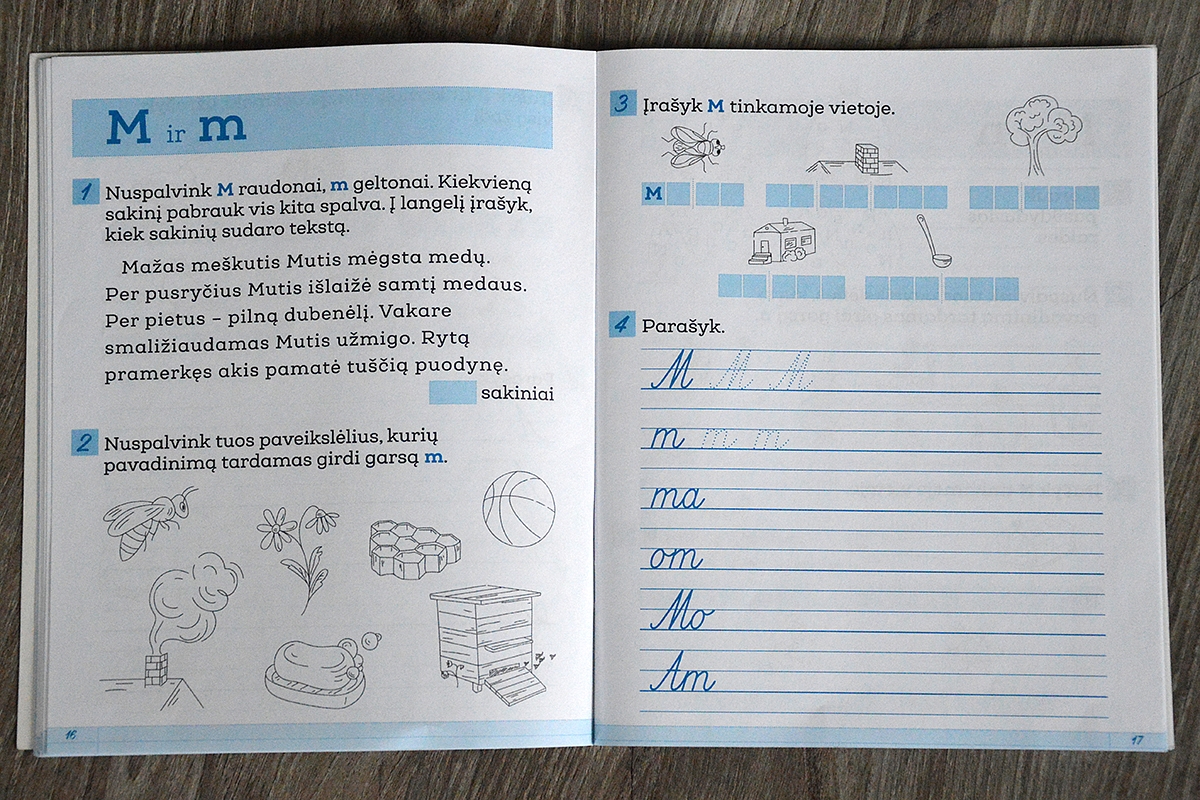 M ir m
1 Nuspalvink M raudonai, m geltonai. Kiekvieną
sakinį pabrauk vis kita spalva. Į langelį įrašyk,
kiek sakinių sudaro tekstą.
Mažas meškutis Mutis mėgsta medų.
Per pusryčius Mutis išlaižė samtį medaus.
Per pietus – pilną dubenėlį. Vakare
smaližiaudamas Mutis užmigo. Rytą
pramerkęs akis pamatė tuščią puodynę.
sakiniai
2 Nuspalvink tuos paveikslėlius, kurių
pavadinimą tardamas girdi garsą m.
16
3 Įrašyk M tinkamoje vietoje.
M
4 Parašyk.
M M M
m m m
ma
om
Mo
Am
17